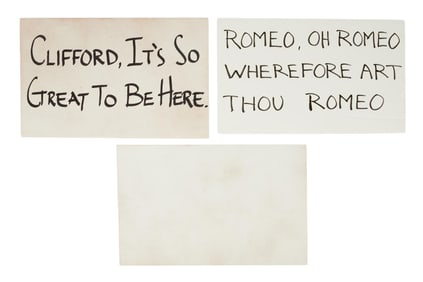 CLIFFORD, IT'S SO
GREAT TO BE HERE.
ROMEO, OH ROMEO
WHEREFORE ART
THOU ROMEO